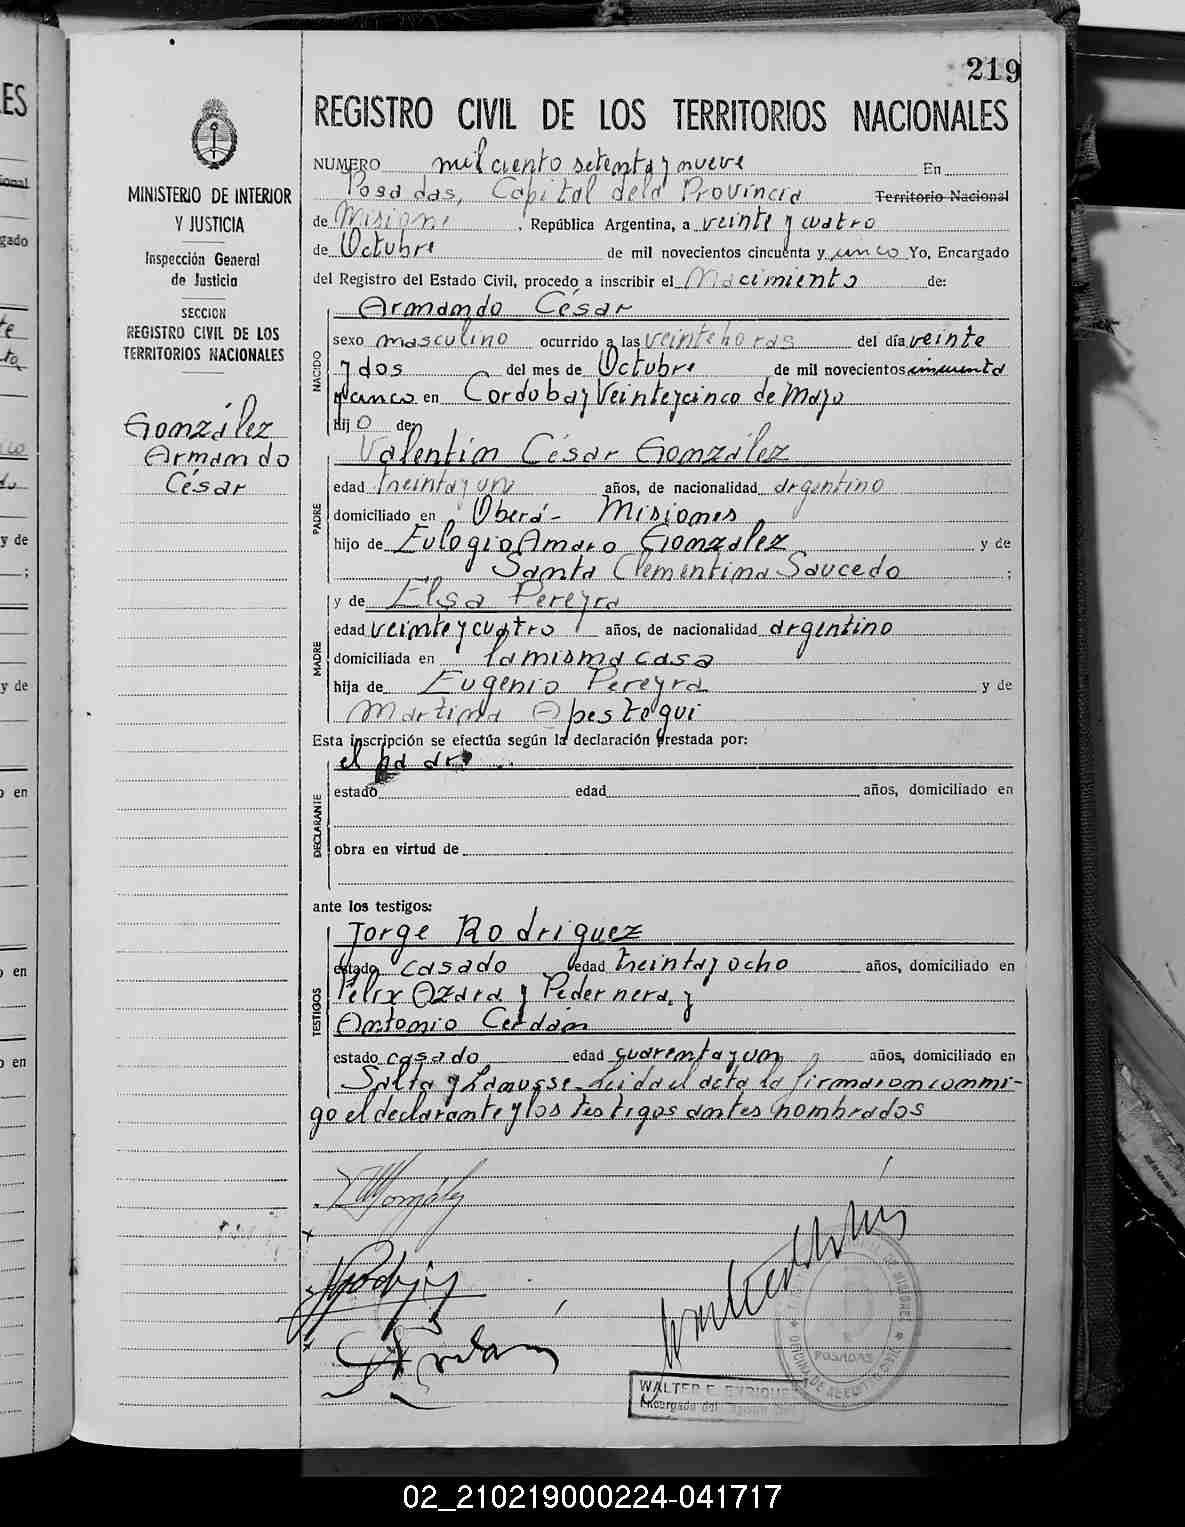 219
REGISTRO CIVIL DE LOS TERRITORIOS NACIONALES
MINISTERIO DE INTERIOR
Y JUSTICIA
Inspección General
de Justicia
SECCION
REGISTRO CIVIL DE LOS
TERRITORIOS NACIONALES
González
Armando
César
NUMERO mil ciento setenta y nueve En
Posadas, Capital de la Provincia Territorio Nacional
de Misione , República Argentina, a veinte y cuatro
de Octubre de mil novecientos cincuenta y cinco Yo, Encargado
del Registro del Estado Civil, procedo a inscribir el Nacimiento de:
Armando César
NACIDO
sexo masculino ocurrido a las veinte horas del día veinte
y dos del mes de Octubre de mil novecientos cincuenta
y cinco en Cordoba y Veinte y cinco de Mayo
hij o de
Valentin César González
PADRE
edad treinta y un años, de nacionalidad argentino
domiciliado en Oberá - Misiones
hijo de Eulogio Amaro González y de
Santa Clementina Saucedo ;
y de Elsa Pereyra
MADRE
edad veinte y cuatro años, de nacionalidad argentino
domiciliada en la misma casa
hija de Eugenio Pereyra y de
Martina Apestegui
Esta inscripción se efectúa según la declaración prestada por:
el padre
DECLARANTE
estado edad años, domiciliado en
obra en virtud de
ante los testigos:
Jorge Rodriguez
TESTIGOS
estado casado edad treinta y ocho años, domiciliado en
Félix Azara y Pedernera, y
Antonio Cerdán
estado casado edad cuarenta y un años, domiciliado en
Salta y Lanusse - Leida el acta la firmaron conmi-
go el declarante y los testigos antes nombrados
González
POSADAS
WALTER E. ENRIQUE
Encargado del
02_210219000224-041717